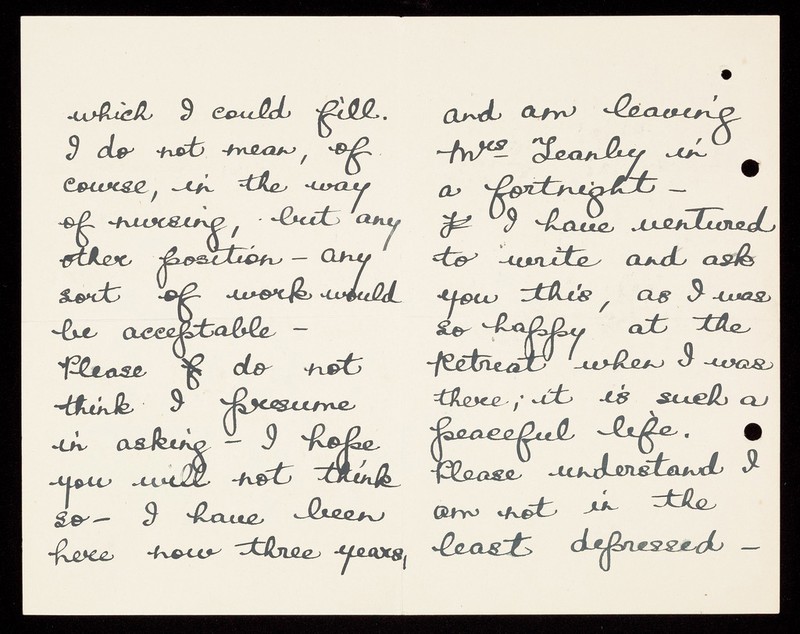 which I could fill.
I do not mean, of
course, in the way
of nursing, but any
other position - any
sort of work would
be acceptable -
Please do not
think I presume
in asking - I hope
you will not think
so - I have been
here now three years,
and am leaving
Mrs Leanby in
a fortnight -
I have ventured
to write and ask
you this, as I was
so happy at the
Retreat when I was
there; it is such a
peaceful life.
Please understand I
am not in the
least depressed -